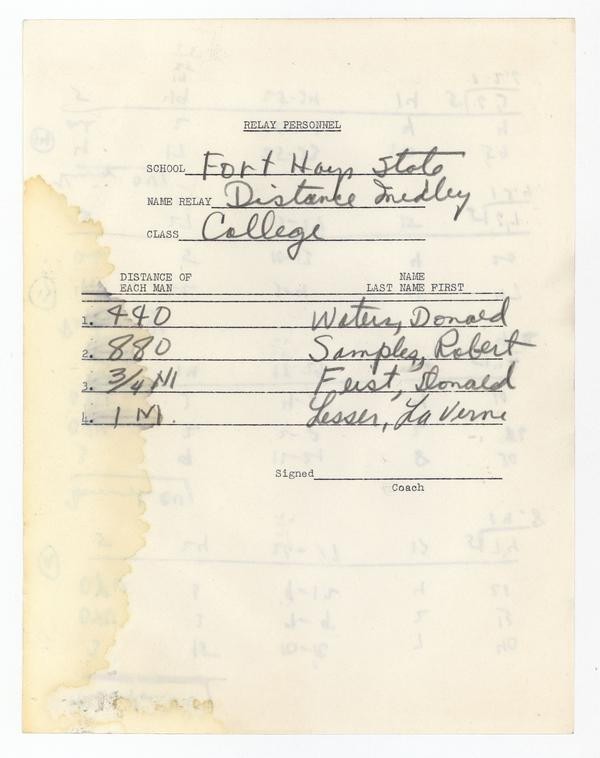 RELAY PERSONNEL
SCHOOL Fort Hays State
NAME RELAY Distance Medley
CLASS College
DISTANCE OF EACH MAN NAME LAST NAME FIRST
1. 440 Waters, Donald
2. 880 Samples, Robert
3. 3/4 M Feist, Donald
4. 1 M. Lesser, La Verne
Signed
Coach